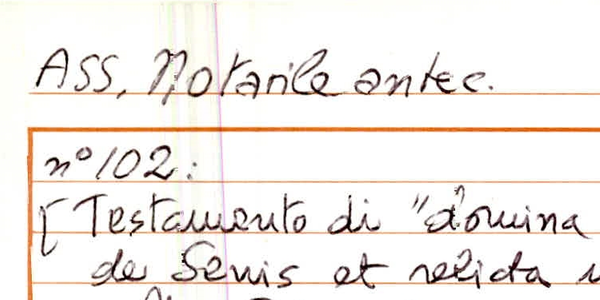 ASS, Notarile antec.
n° 102:
[Testamento di "domina
de Senis et relicta